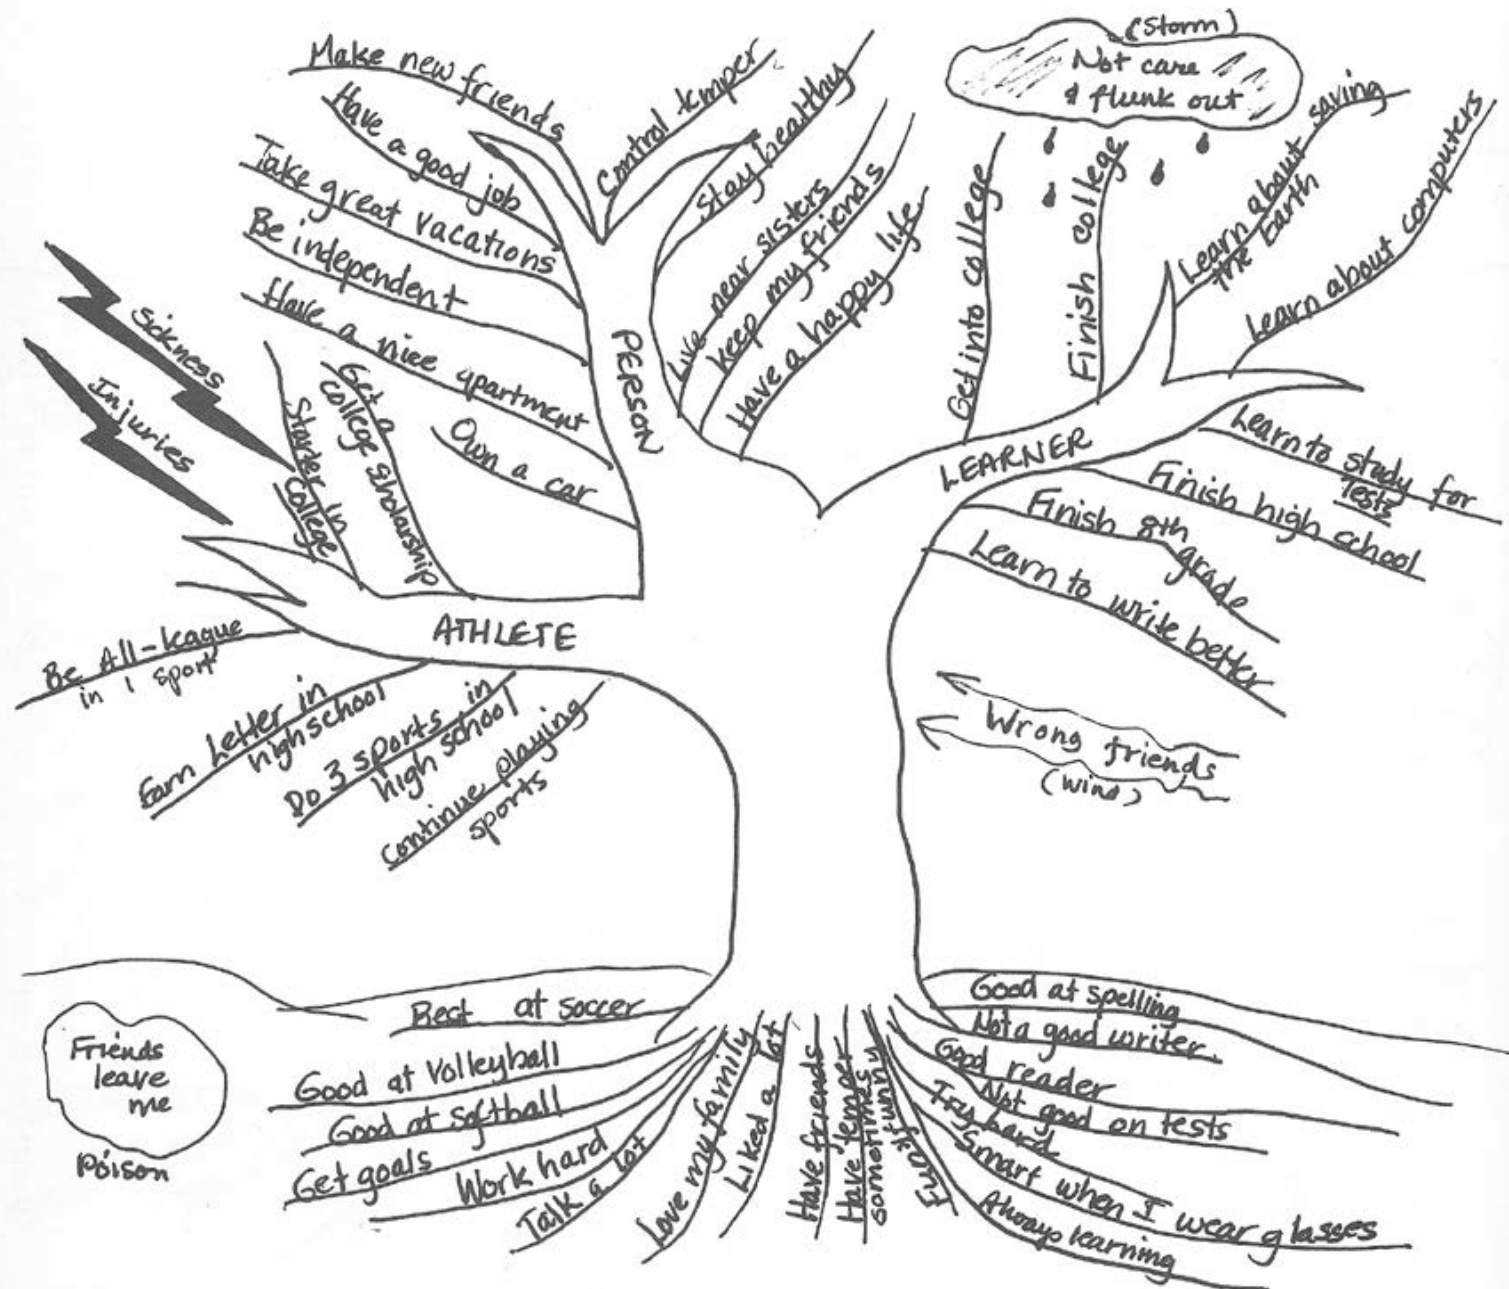 Make new friends
Have a good job
Take great vacations
Be independent
Have a nice apartment
Own a car
PERSON
Control temper
Stay healthy
Live near sisters
keep my friends
Have a happy life
(storm)
Not care
& flunk out
Get into college
Finish college
Learn about saving
the Earth
Learn about computers
LEARNER
Learn to study for
Tests
Finish high school
Finish 8th
grade
Learn to write better
Wrong friends
(wind)
Sickness
Injuries
Starter in
college
Get a
college scholarship
ATHLETE
Be All-league
in 1 sport
Earn Letter in
high school
Do 3 sports in
high school
continue playing
sports
Friends
leave
me
Poison
Best at soccer
Good at Volleyball
Good at softball
Get goals
Work hard
Talk a lot
Love my family
Liked a lot
Have friends
Have temper
sometimes
Funny
Good at spelling
Not a good writer.
Good reader
Not good on tests
Try hard
Smart when I wear glasses
Always learning